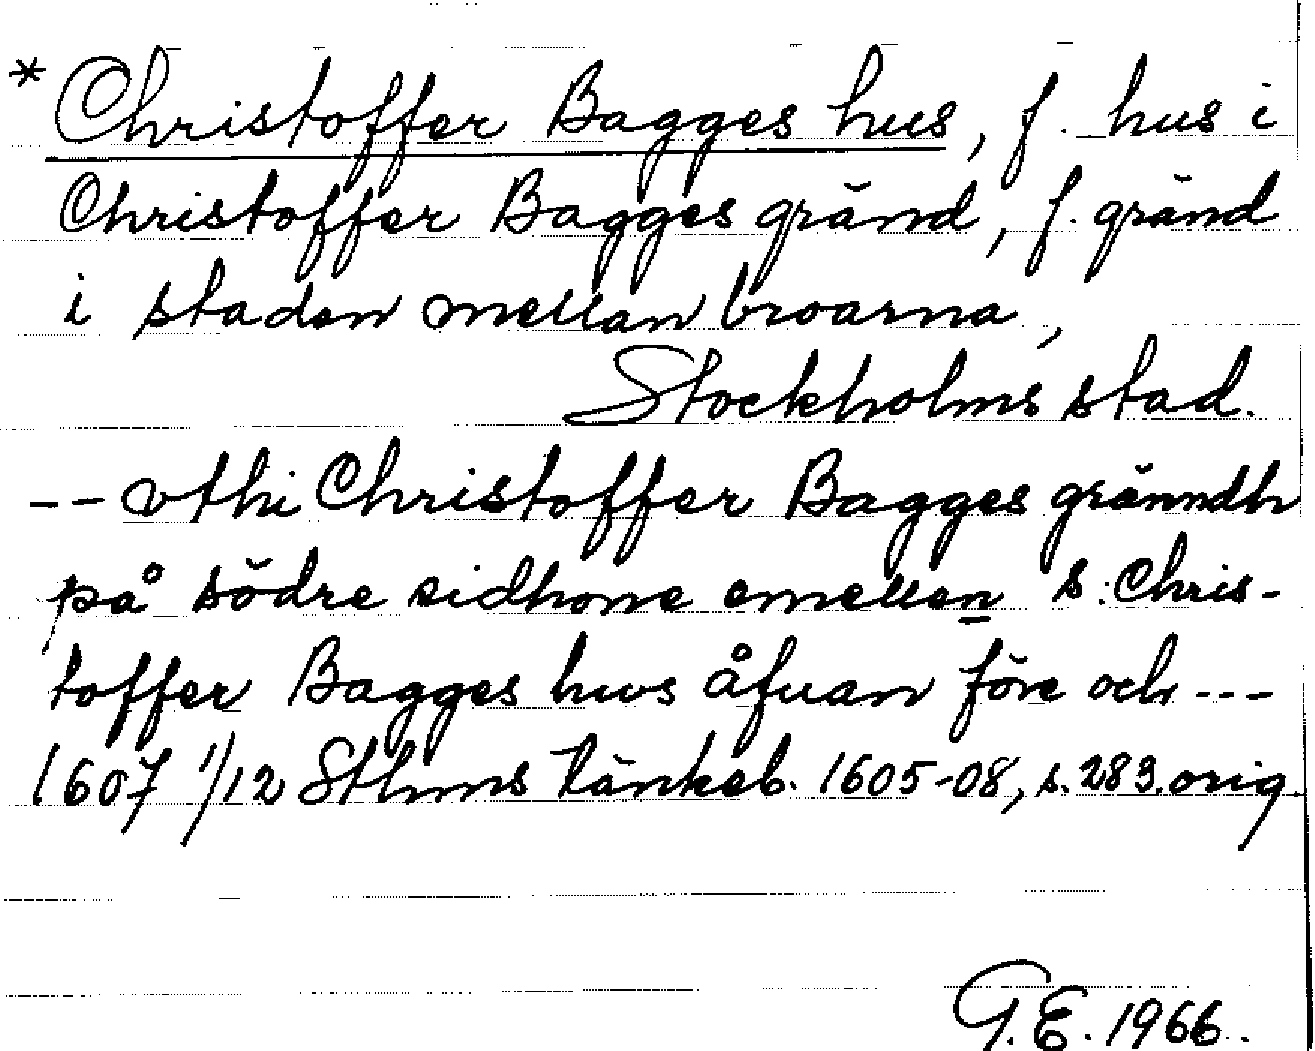 * Christoffer Bagges hus, f. hus i
Christoffer Bagges gränd, f. gränd
i staden mellan broarna,
Stockholms stad.
-- vthi Christoffer Bagges gränndh
på södre sidhone emellen S. Chris-
toffer Bagges hws åfuan före och ---
1607 1/12 Sthms tänkeb. 1605-08, s. 283. orig.
G.E. 1966.